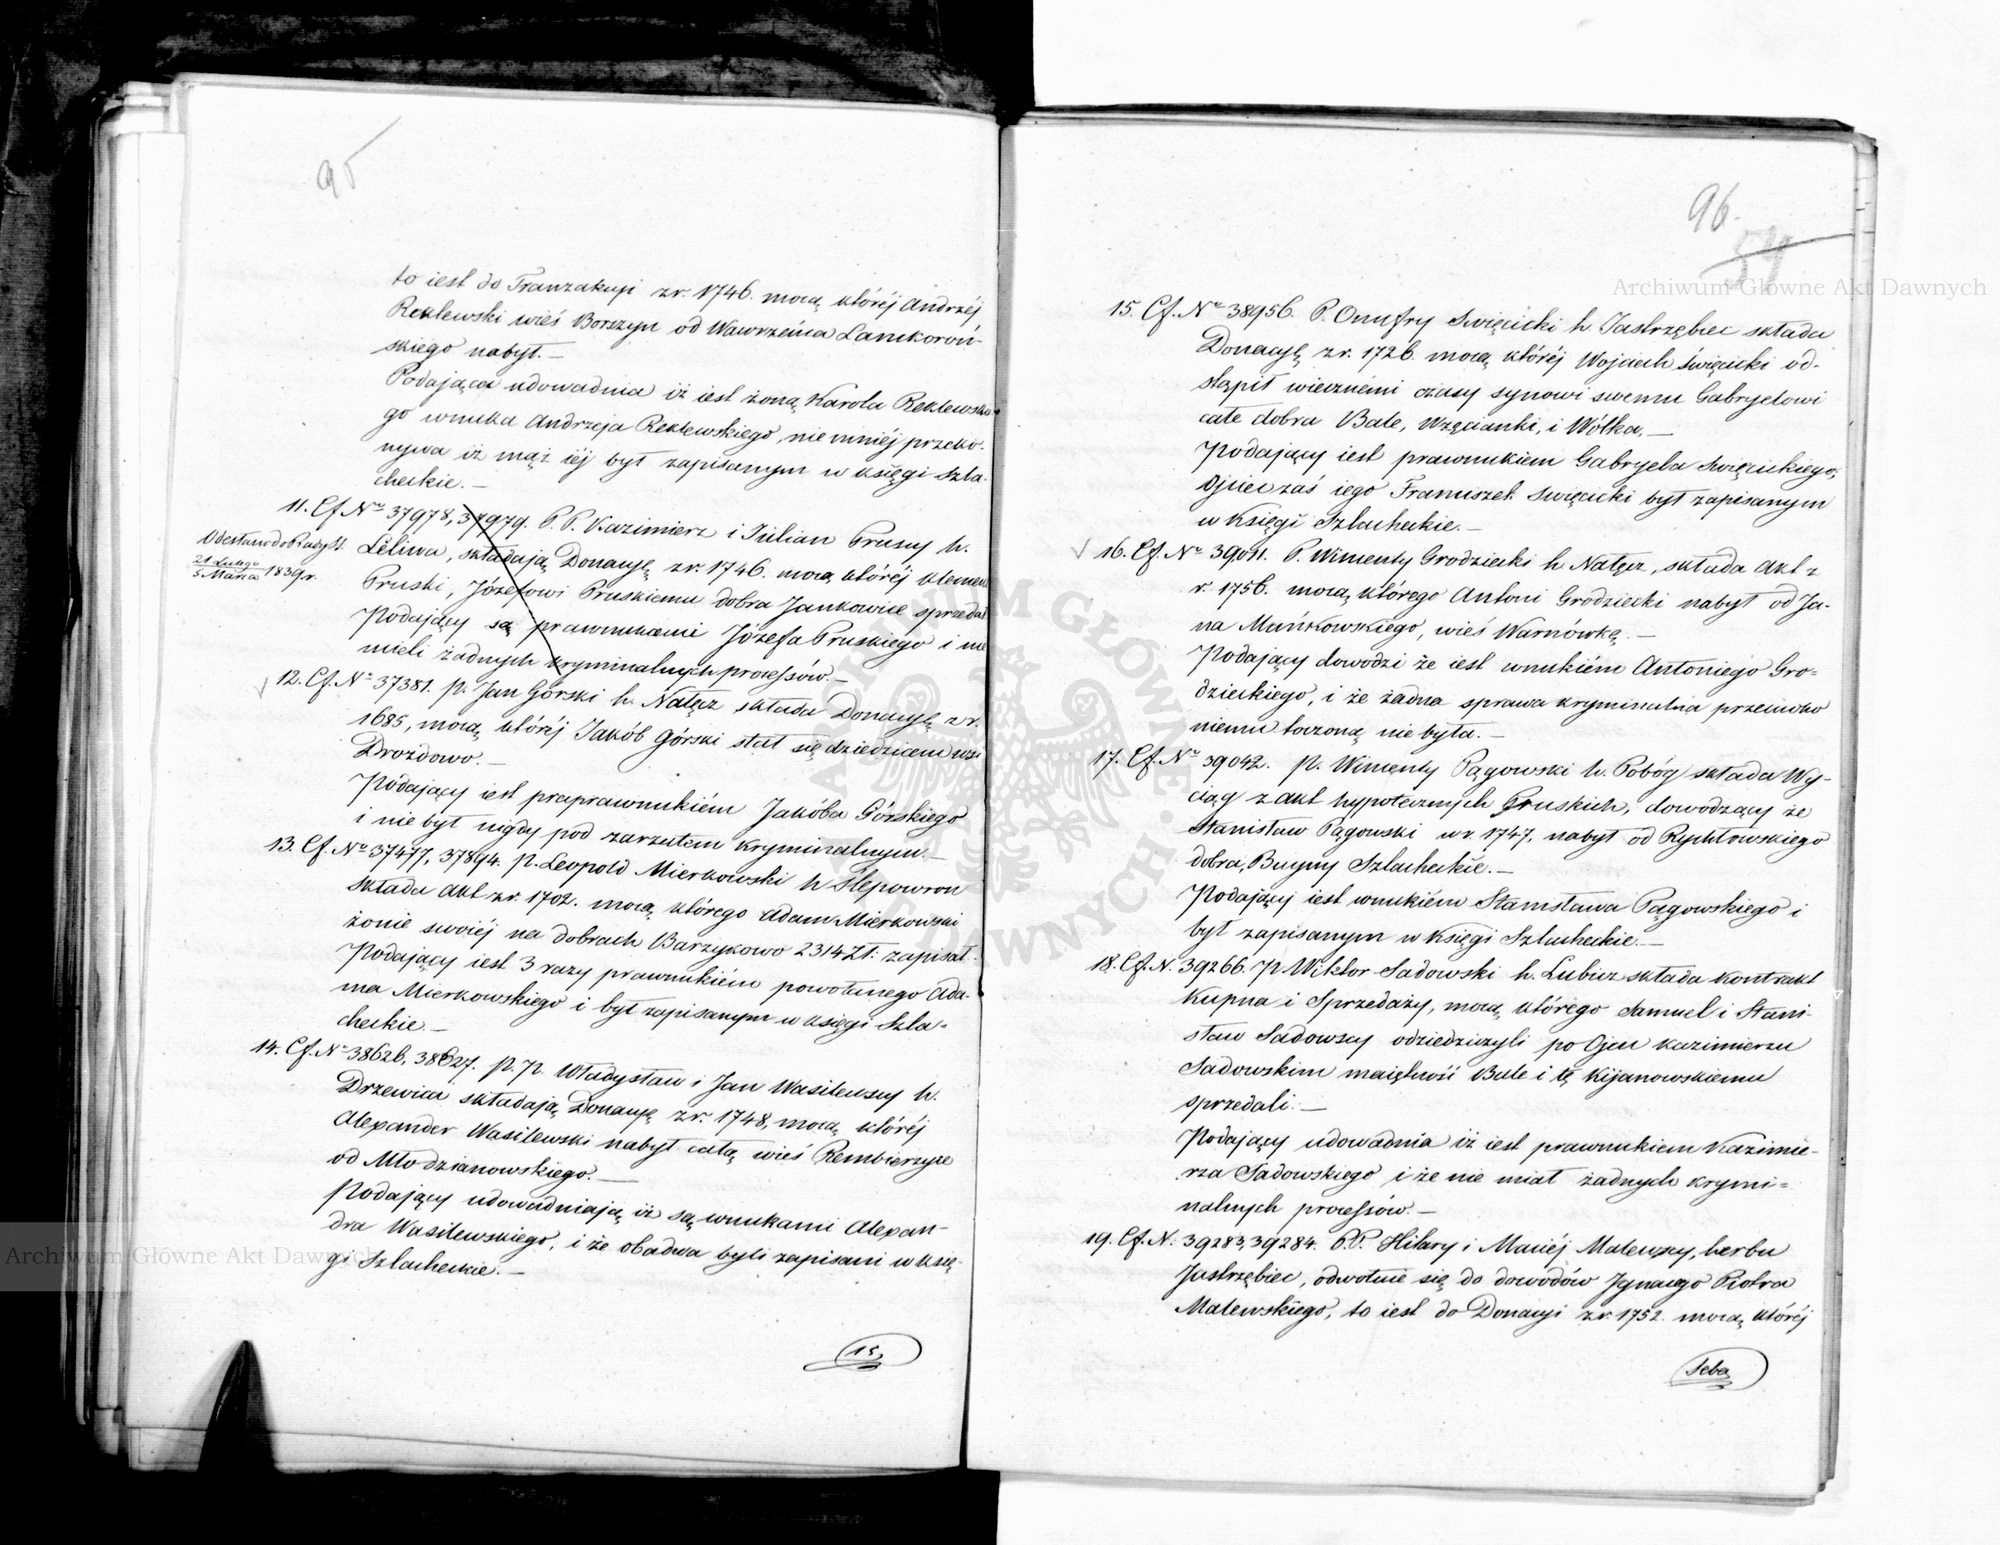 95
to iest do Tranzakcyi z r. 1746. mocą któréj Andrzéj
Reklewski wieś Borszyn od Wawrzeńca Lanckoroń-
skiego nabył. —
Podająca udowadnia iż iest żoną Karola Reklewskie-
go wnuka Andrzeja Reklewskiego, niemniéj przeko-
nywa iż mąż iéj był zapisanym w księgi szla-
checkie. —
11. Cf. Nº 37978, 37979. P. P. Kazimierz i Julian Pruscy h.
Odesłano do Rady St.
21 Lutego
5 Marca 1839 r.
Leliwa, składają Donacyę z r. 1746. mocą któréj Klemens
Pruski, Józefowi Pruskiemu dobra Jankowice sprzedał
Podający są prawnukami Józefa Pruskiego i nie
mieli żadnych kryminalnych processów. —
12. Cf. Nº 37381. p. Jan Górski h. Nałęcz składa Donacyę z r.
1685, mocą któréj Jakób Górski stał się dziedzicem wsi
Drozdowo. —
Podający iest praprawnukiém Jakóba Górskiego
i nie był nigdy pod zarzutem kryminalnym. —
13. Cf. Nº 37477, 37894. p. Leopold Mierkowski h Slepowron
składa Akt z r. 1702. mocą którego Adam Mierkowski
żonie swoiéj na dobrach Barzykowo 2314 Zł: zapisał.
Podający iest 3 razy prawnukiém powołanego Ada-
ma Mierkowskiego i był zapisanym w księgi Szla-
checkie. —
14. Cf. Nº 38626, 38627. p. p. Władysław i Jan Wasilewscy h.
Drzewica składają Donacyę z r. 1748, mocą któréj
Alexander Wasilewski nabył całą wieś Rembierzyce
od Młodzianowskiego. —
Podający udowadniają iż są wnukami Alexan-
dra Wasilewskiego, i że obadwa byli zapisani w księ-
gi Szlacheckie. —
15,
96.
54
15. Cf. Nº 38956. P. Onufry Swięcicki h. Jastrzębiec składa
Donacyę z r. 1726. mocą któréj Wojciech Święcicki od-
stąpił wiecznémi czasy synowi swemu Gabryelowi
całe dobra Bale, Wzęcianki, i Wólka. —
Podający iest prawnukiem Gabryela Swięcickiego,
Ojciec zaś iego Franciszek Swięcicki był zapisanym
w Księgi Szlacheckie. —
16. Cf. Nº 39011. P. Wincenty Grodziecki h. Nałęcz, składa Akt z
r. 1756. mocą którego Antoni Grodziecki nabył od Ja-
na Mańkowskiego, wieś Warnówkę. —
Podający dowodzi że iest wnukiém Antoniego Gro-
dzieckiego, i że żadna sprawa kryminalna przeciwko
niemu toczoną nie była. —
17. Cf. Nº 39042. p. Wincenty Pągowski h. Pobóg składa Wy-
ciąg z akt hypotecznych Pruskich, dowodzący że
Stanisław Pągowski w r. 1747, nabył od Rychłowskiego
dobra, Bugmy Szlacheckie. —
Podający iest wnukiém Stanisława Pągowskiego i
był zapisanym w Księgi Szlacheckie. —
18. Cf. N. 39266. p Wiktor Sadowski h. Lubicz składa kontrakt
Kupna i Sprzedaży, mocą którego Samuel i Stani-
sław Sadowscy odziedziczyli po Ojcu Kazimierzu
Sadowskim maiętność Bale i tę Kijanowskiemu
sprzedali. —
Podający udowadnia iż iest prawnukiem Kazimie-
rza Sadowskiego i że nie miał żadnych krymi-
nalnych processów. —
19. Cf. N. 39283, 39284. P.P. Hilary i Maciéj Malewscy, herbu
Jastrzębiec, odwołuie się do dowodów Ignacego Piotra
Malewskiego, to iest do Donacyi z r. 1752. mocą któréj
Seba
Archiwum Główne Akt Dawnych
Archiwum Główne Akt Dawnych
ARCHIWUM GŁÓWNE AKT DAWNYCH